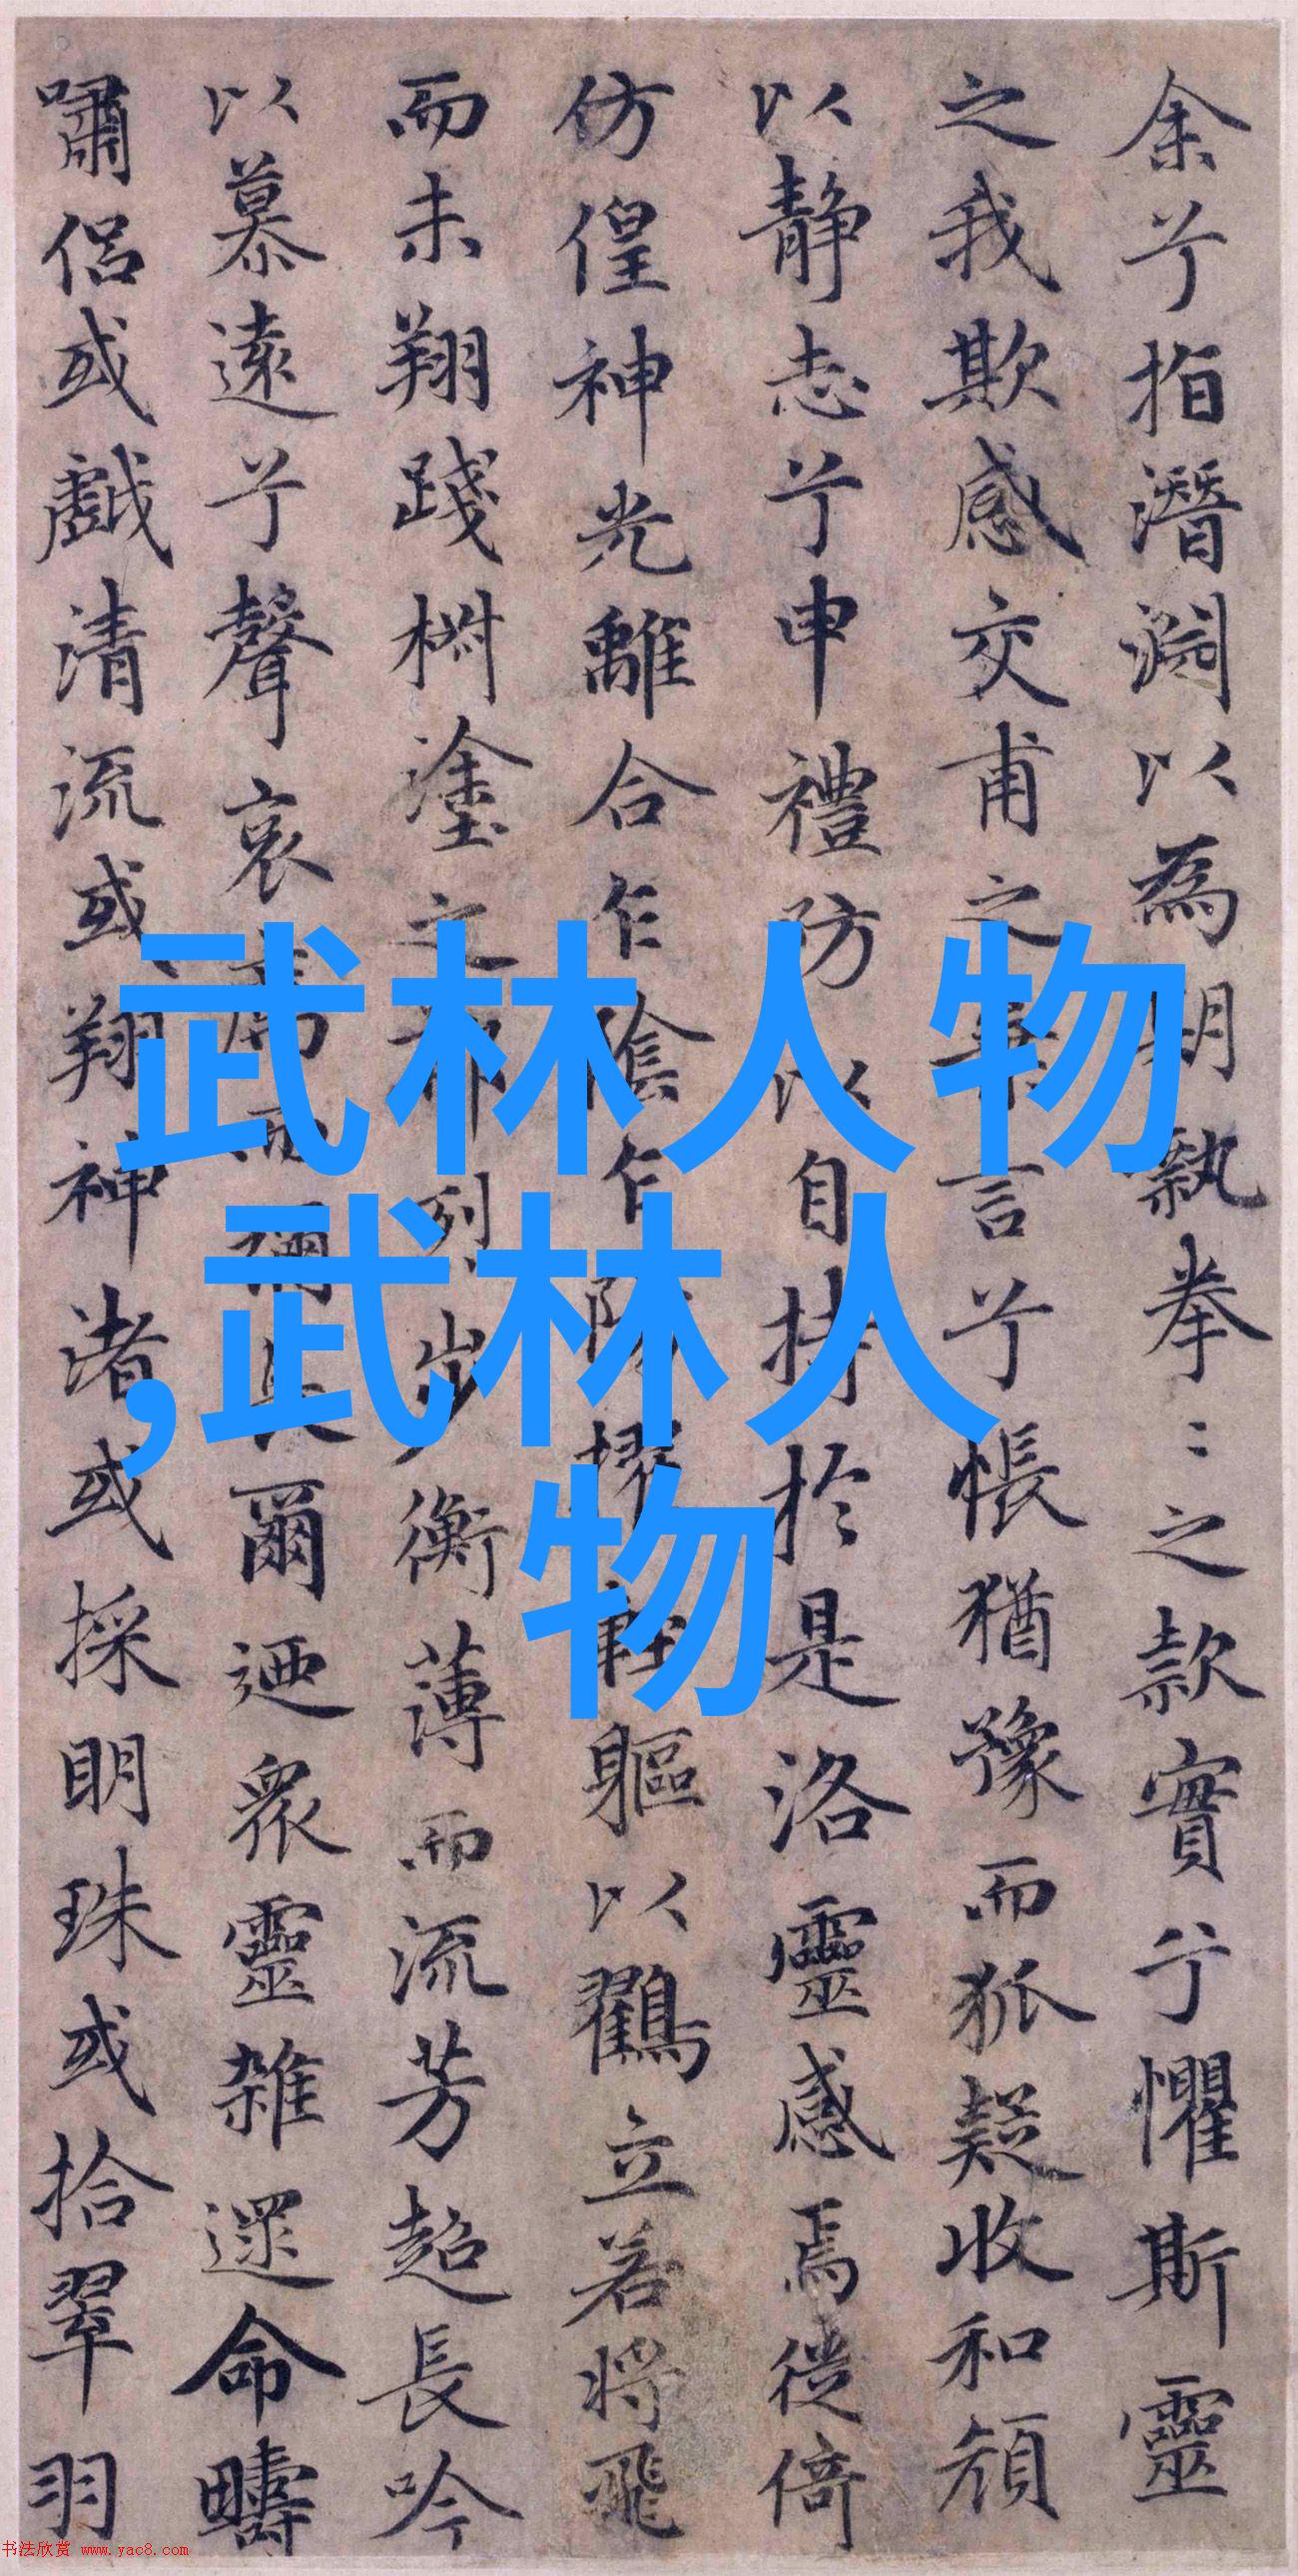 余兮指潛淵以為期執拳〻之款實兮懼斯靈
之我欺感交甫之棄言兮悵猶豫而狐疑收和顏
以靜志兮申禮防以自持於是洛靈感焉徙倚
仿偟神光離合乍陰乍陽擢輕軀以鸖立若將飛
而未翔踐椒塗之郁列步衡薄而流芳超長吟
以慕遠兮聲哀厲而彌長爾迺衆靈雜遝命疇
嘯侶或戲清流或翔神渚或採明珠或拾翠羽
武林人物
,武林人
物
书法欣赏 www.yac8.com